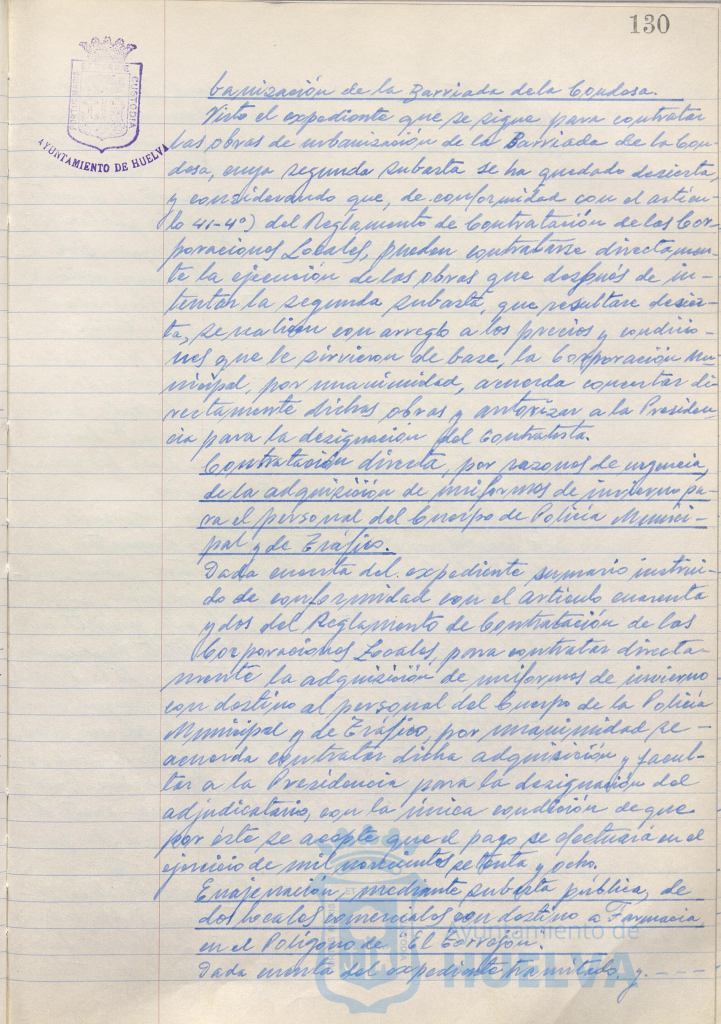 130
CUSTODIA
AYUNTAMIENTO DE HUELVA
banización de la Barriada de la Condesa.
Visto el expediente que se sigue para contratar
las obras de urbanización de la Barriada de la Con-
desa, cuya segunda subasta se ha quedado desierta,
y considerando que, de conformidad con el artícu-
lo 41-4º) del Reglamento de Contratación de las Cor-
poraciones Locales, pueden contratarse directamen-
te la ejecución de las obras que después de in-
tentar la segunda subasta, que resultare desier-
ta, se realicen con arreglo a los precios y condicio-
nes que le sirvieron de base, la Corporación Mu-
nicipal, por unanimidad, acuerda concertar di-
rectamente dichas obras y autorizar a la Presiden-
cia para la designación del Contratista.
Contratación directa, por razones de urgencia,
de la adquisición de uniformes de invierno pa-
ra el personal del Cuerpo de Policía Munici-
pal y de Tráfico.
Dada cuenta del expediente sumario instrui-
do de conformidad con el artículo cuarenta
y dos del Reglamento de Contratación de las
Corporaciones Locales, para contratar directa-
mente la adquisición de uniformes de invierno
con destino al personal del Cuerpo de la Policía
Municipal y de Tráfico, por unanimidad se
acuerda contratar dicha adquisición y facul-
tar a la Presidencia para la designación del
adjudicatario, con la única condición de que
por éste se acepte que el pago se efectuará en el
ejercicio de mil novecientos setenta y ocho.
Enajenación, mediante subasta pública, de
dos locales comerciales con destino a Farmacia,
en el Polígono de El Torrejón.
Dada cuenta del expediente tramitado y - - - -
Ayuntamiento de
HUELVA